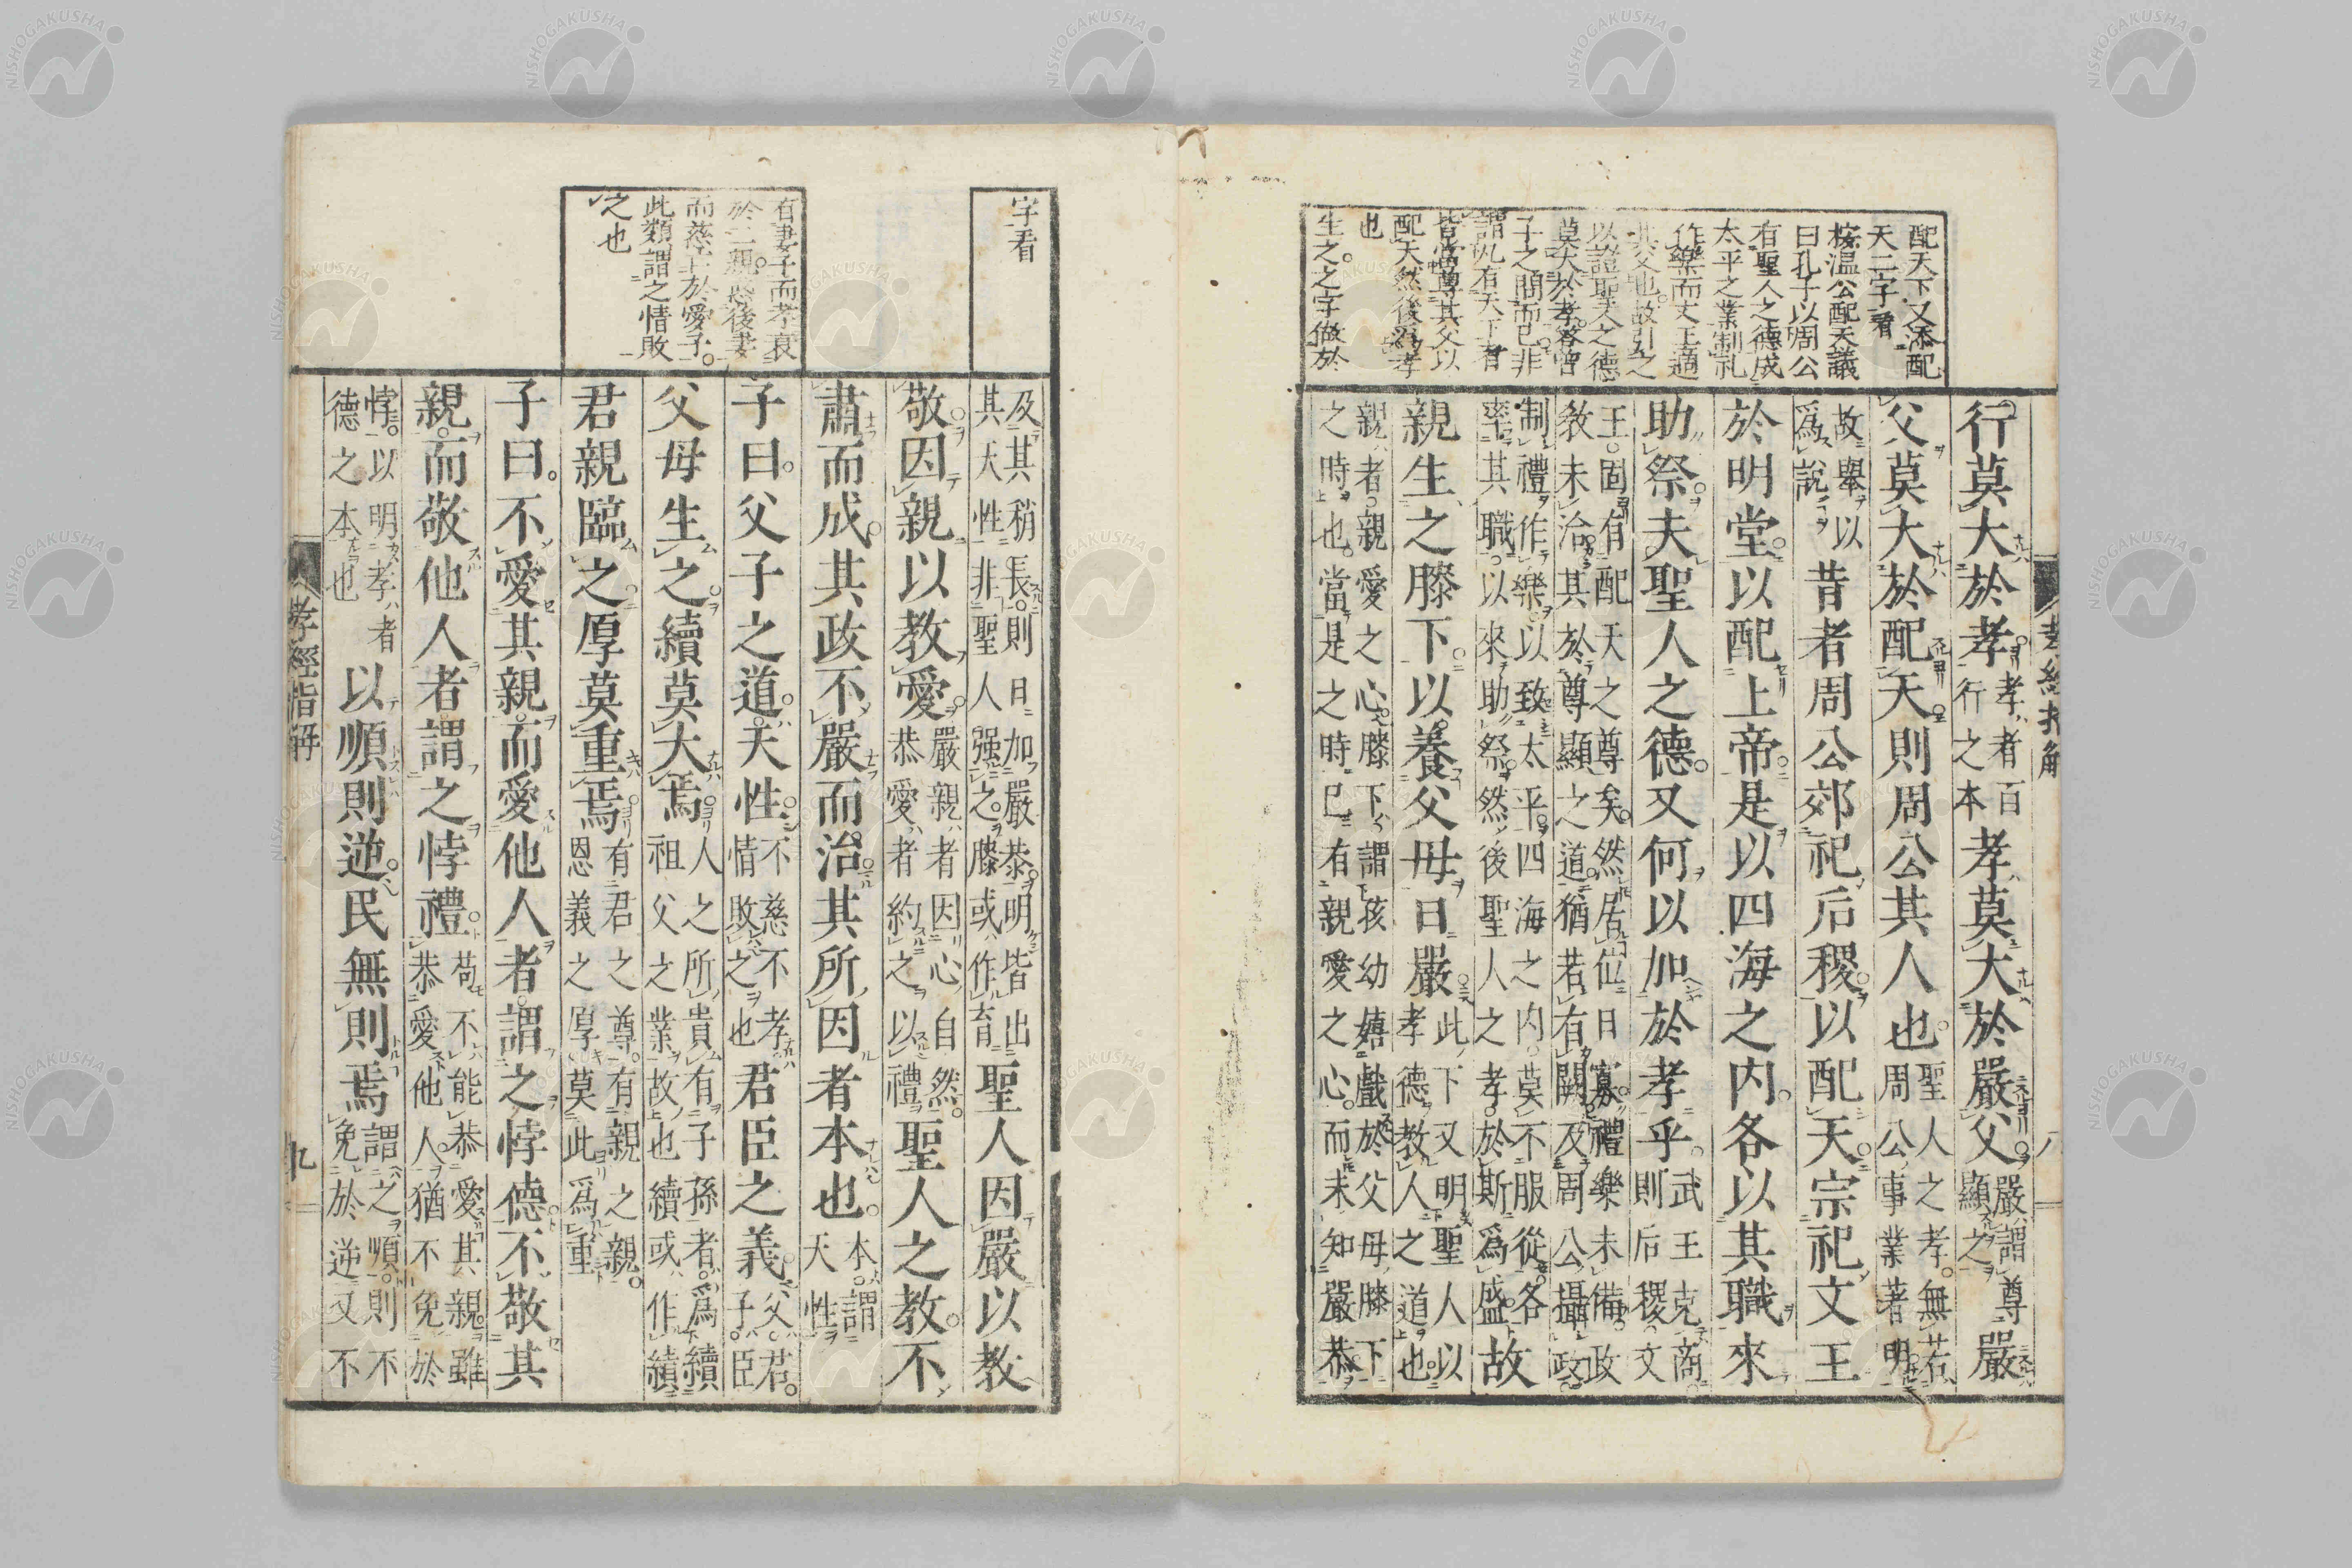 配天下又添配
天二字看
按温公配天議
曰孔子以周公
有聖人之德成
太平之業制礼
作樂而文王適
其父也故引之
以證聖人之德
莫大於孝答曾
子之問而已非
謂凡有天下者
皆當尊其父以
配天然後爲孝
也
生之之字做於
孝經指解
八
行莫大於孝孝者百行之本孝莫大於嚴父嚴謂尊顯之嚴
父莫大於配天則周公其人也聖人之孝無若周公事業著明
故舉以爲說昔者周公郊祀后稷以配天宗祀文王
於明堂以配上帝是以四海之內各以其職來
助祭夫聖人之德又何以加於孝乎武王克商則后稷文
王固有配天之尊矣然居位日寡禮樂未備政
教未洽其於尊顯之道猶若有闕及周公攝政
制禮作樂以致太平四海之內莫不服從各
率其職以來助祭然後聖人之孝於斯爲盛故
親生之膝下以養父母日嚴此下又明聖人以孝德教人之道也
親者親愛之心膝下謂孩幼嬉戲於父母膝下
之時也當是之時已有親愛之心而未知嚴恭
字看
有妻子而孝衰
於二親愍後妻
而慈於愛子
此類謂之情敗
之也
及其稍長則日加嚴恭明皆出
其天性非聖人强之膝或作育聖人因嚴以教
敬因親以教愛嚴親者因心自然恭愛者約之以禮聖人之教不
肅而成其政不嚴而治其所因者本也本謂天性
子曰父子之道天性不慈不孝情敗之也君臣之義父君子臣
父母生之續莫大焉人之所貴有子孫者爲續祖父之業故也續或作績
君親臨之厚莫重焉有君之尊有親之親恩義之厚莫此爲重
子曰不愛其親而愛他人者謂之悖德不敬其
親而敬他人者謂之悖禮苟不能恭愛其親雖恭愛他人猶不免於
悖以明孝者德之本也以順則逆民無則焉謂之順則不免於逆又不
孝經指解
九